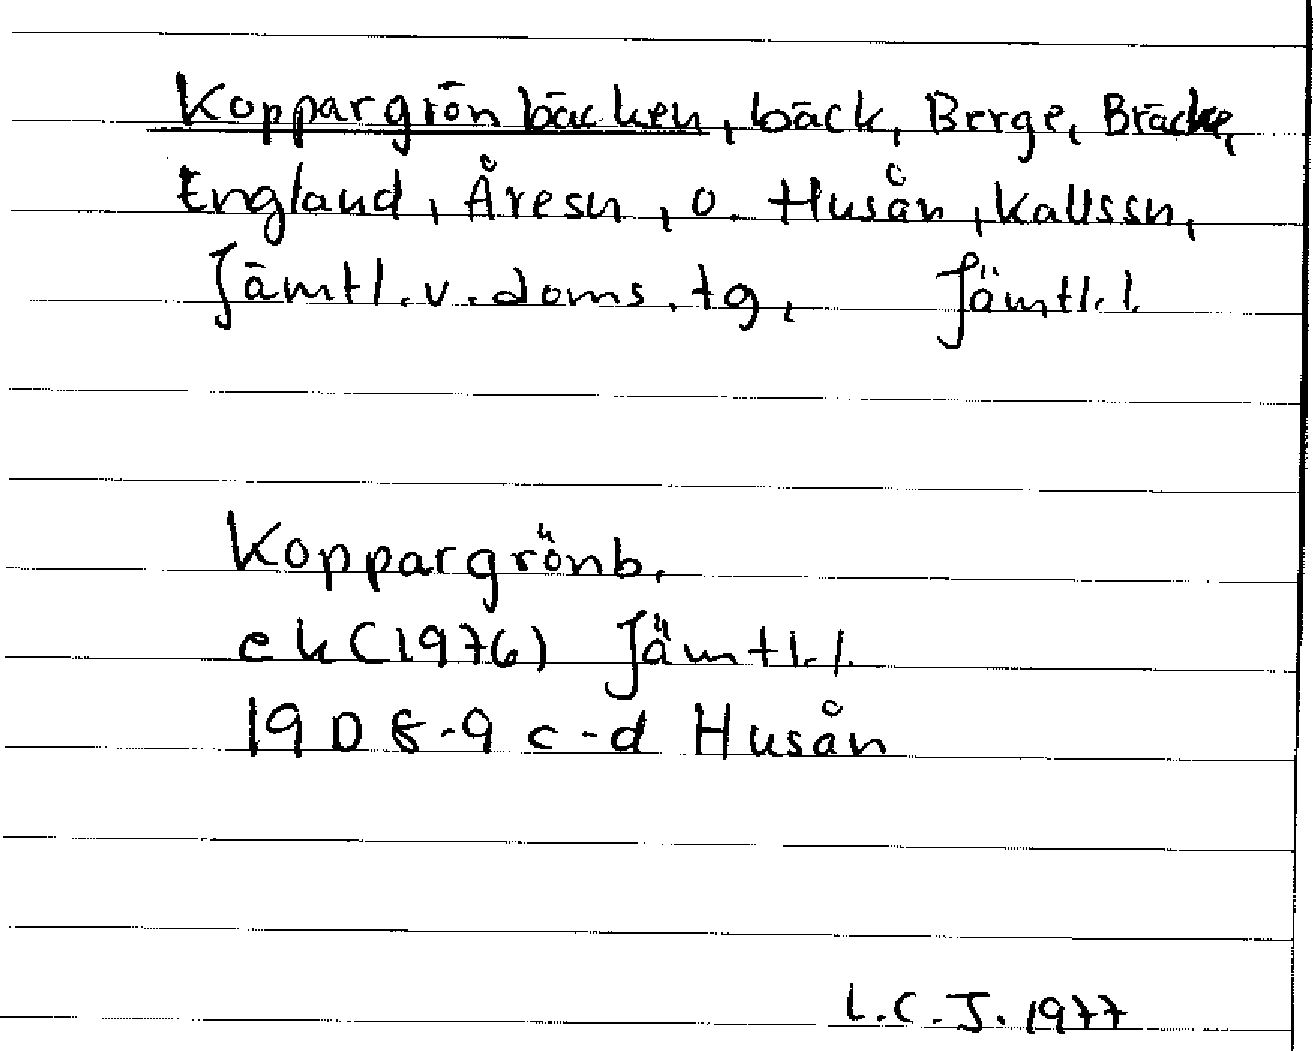 Koppargrönbäcken, bäck, Berge, Bräcke,
England, Åresn, o. Husån, Kallssn,
Jämtl. v. doms. tg, Jämtl. l.
Koppargrönb.
ek (1976) Jämtl. l.
19 D 8-9 c-d Husån
L.C.J. 1977